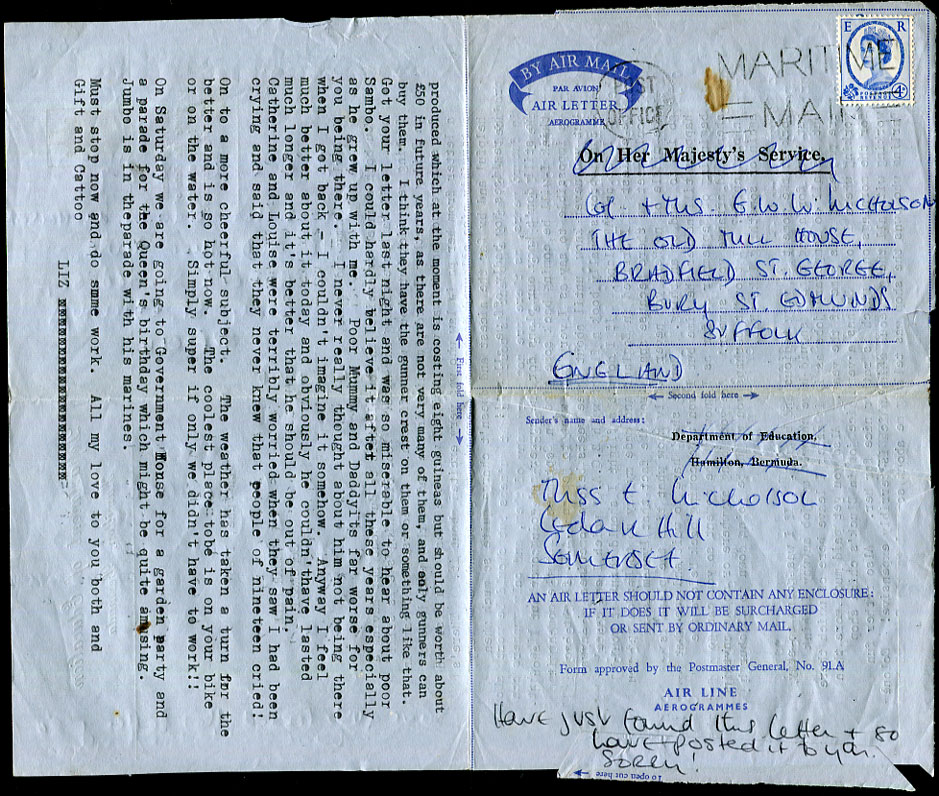 produced which at the moment is costing eight guineas but should be worth about
£50 in future years, as there are not very many of them, and only gunners can
buy them.  I think they have the gunner crest on them or something like that.
Got your letter last night and was so miserable to hear about poor
Sambo.  I could hardly believe it after all these years especially
as he grew up with me.  Poor Mummy and Daddy-its far worse for
you being there.  I never really thought about him not being there
when I get back - I couldn't imagine it somehow.  Anyway I feel
much better about it today and obviously he couldn'thave lasted
much longer and it's better that he should be out of pain.
Catherine and Louise were terribly worried when they saw I had been
crying and said that they never knew that people of nineteen cried!
On to a more cheerful subject.  The weather has taken a turn for the
better and is so hot now.  The coolest place tobe is on your bike
or on the water.  Simply super if only we didn't have to work!!
On Saturday we are going to Government House for a garden party and
a parade for the Queen's birthday which might be quite amusing.
Jumbo is in theparade with his marines.
Must stop now and do smme work.  All my love to you both and
Gift and Cattoo
LIZ xxxxxxxxxxxxxxxxxxxx
First fold here
BY AIR MAIL
PAR AVION
AIR LETTER
AEROGRAMME
POST
OFFICE
MARITIME
MAIL
E R
POSTAGE
REVENUE
4D
On Her Majesty's Service,
Col + Mrs E.W.W. Nicholson
THE OLD MILL HOUSE,
BRADFIELD ST. GEORGE,
BURY ST. EDMUNDS
SUFFOLK
ENGLAND
Second fold here
Sender's name and address:
Department of Education,
Hamilton, Bermuda.
Miss E. Nicholson
Cedar Hill
SOMERSET
AN AIR LETTER SHOULD NOT CONTAIN ANY ENCLOSURE:
IF IT DOES IT WILL BE SURCHARGED
OR SENT BY ORDINARY MAIL.
Form approved by the Postmaster General, No. 91.A
AIR LINE
AEROGRAMMES
Have just found this letter + so
have posted it to you.
Sorry!
To open cut here